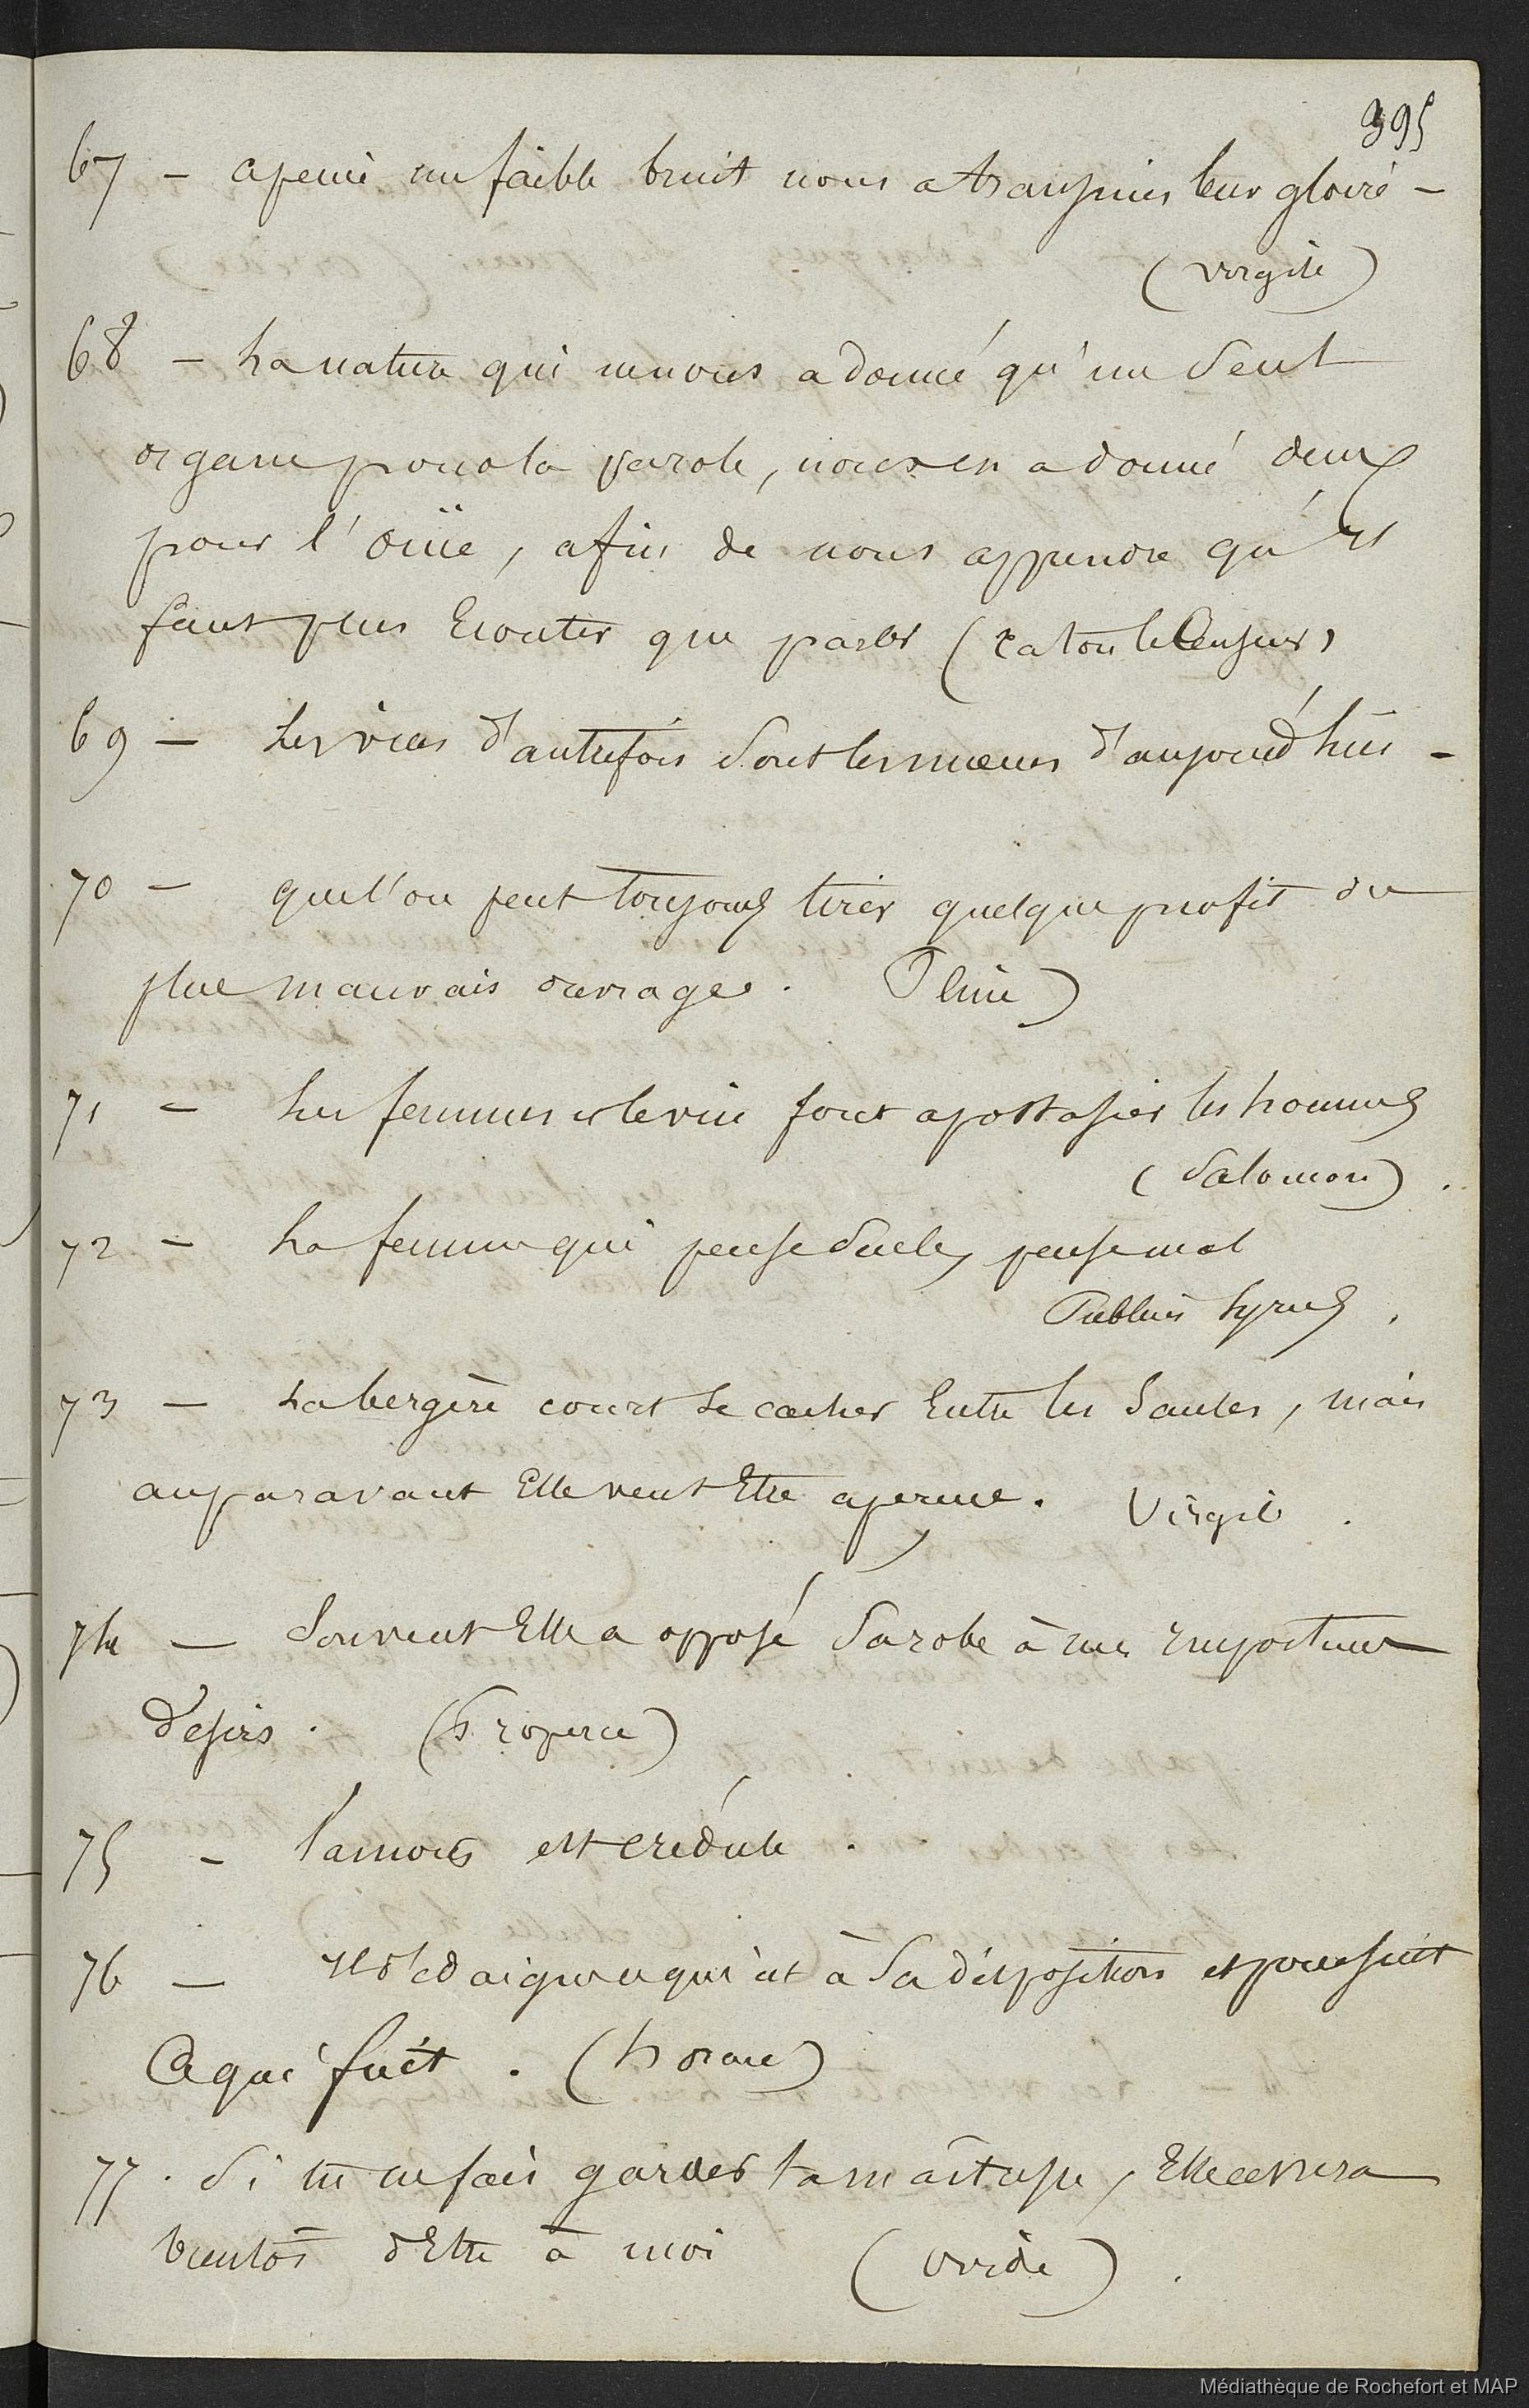 395
67 – apeine un faible bruit nous a transmis leur gloire –
(virgile)
68 – La nature qui ne nous a donné qu'un seul
organe pour la parole, nous en a donné deux
pour l'ouïe, afin de nous apprendre qu'il
faut plus Ecouter que parler (Caton le Censeur)
69 – Les vices d'autrefois sont les mœurs d'aujourd'hui –
70 – que l'on peut toujours tirer quelque profit du
plus mauvais ouvrage. (Pline)
71 – Les femmes et le vin font apostasier les hommes
(Salomon).
72 – La femme qui pense seule, pense mal
Publius Syrus.
73 – La bergère court se cacher Entre les Saules, mais
auparavant Elle veut Etre aperçue. Virgile.
74 – Souvent Elle a opposé sa robe à mes importuns
desirs. (Properce)
75 – l'amour est crédule.
76 – Il dédaigne ce qui est à sa disposition et poursuit
Ce qui fuit. (horace)
77. Si tu ne fais garder ta maîtresse, Elle cessera
bientôt d'Etre à moi (Ovide).
Médiathèque de Rochefort et MAP